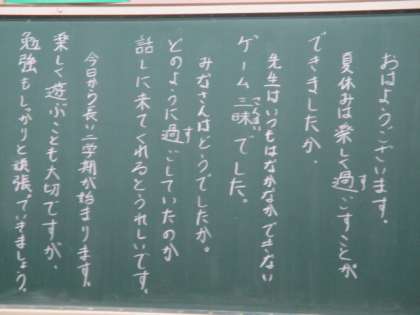 おはようございます。
夏休みは楽しく過すごすことが
できましたか。
先生はいつもはなかなかできない
ゲーム三昧ざんまいでした。
みなさんはどうでしたか。
どのように過すごしていたのか
話しに来てくれるとうれしいです。
今日から長い二学期が始まります。
楽しく遊ぶことも大切ですが、
勉強もしっかりと頑張っていきましょう。